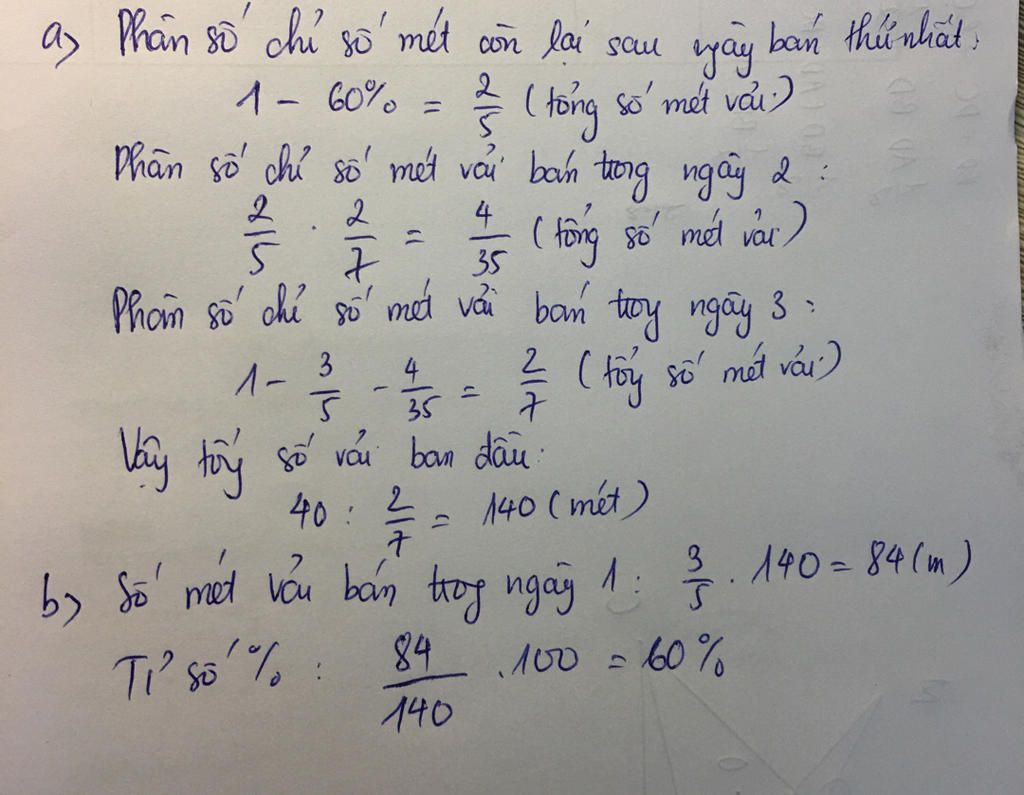 a) Phân số chỉ số mét còn lại sau ngày bán thứ nhất:
1 - 60% = 2/5 (tổng số mét vải)
Phân số chỉ số mét vải bán trong ngày 2 :
2/5 . 2/7 = 4/35 (tổng số mét vải)
Phân số chỉ số mét vải bán trong ngày 3 :
1 - 3/5 - 4/35 = 2/7 (tổng số mét vải)
Vậy tổng số vải ban đầu:
40 : 2/7 = 140 (mét)
b) Số mét vải bán trong ngày 1 : 3/5 . 140 = 84 (m)
Tỉ số % : 84/140 . 100 = 60%